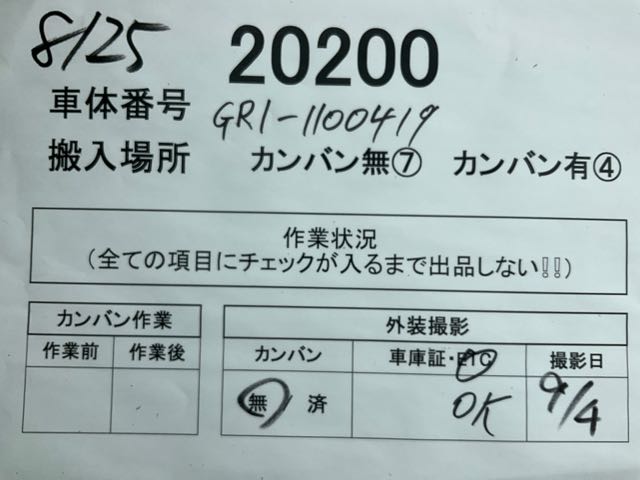 8/25 20200
車体番号 GR1-1100419
搬入場所 カンバン無⑦ カンバン有④
作業状況
(全ての項目にチェックが入るまで出品しない!!)
カンバン作業 外装撮影
作業前 作業後 カンバン 車庫証・ETC 撮影日
無 / 済 OK 9/4